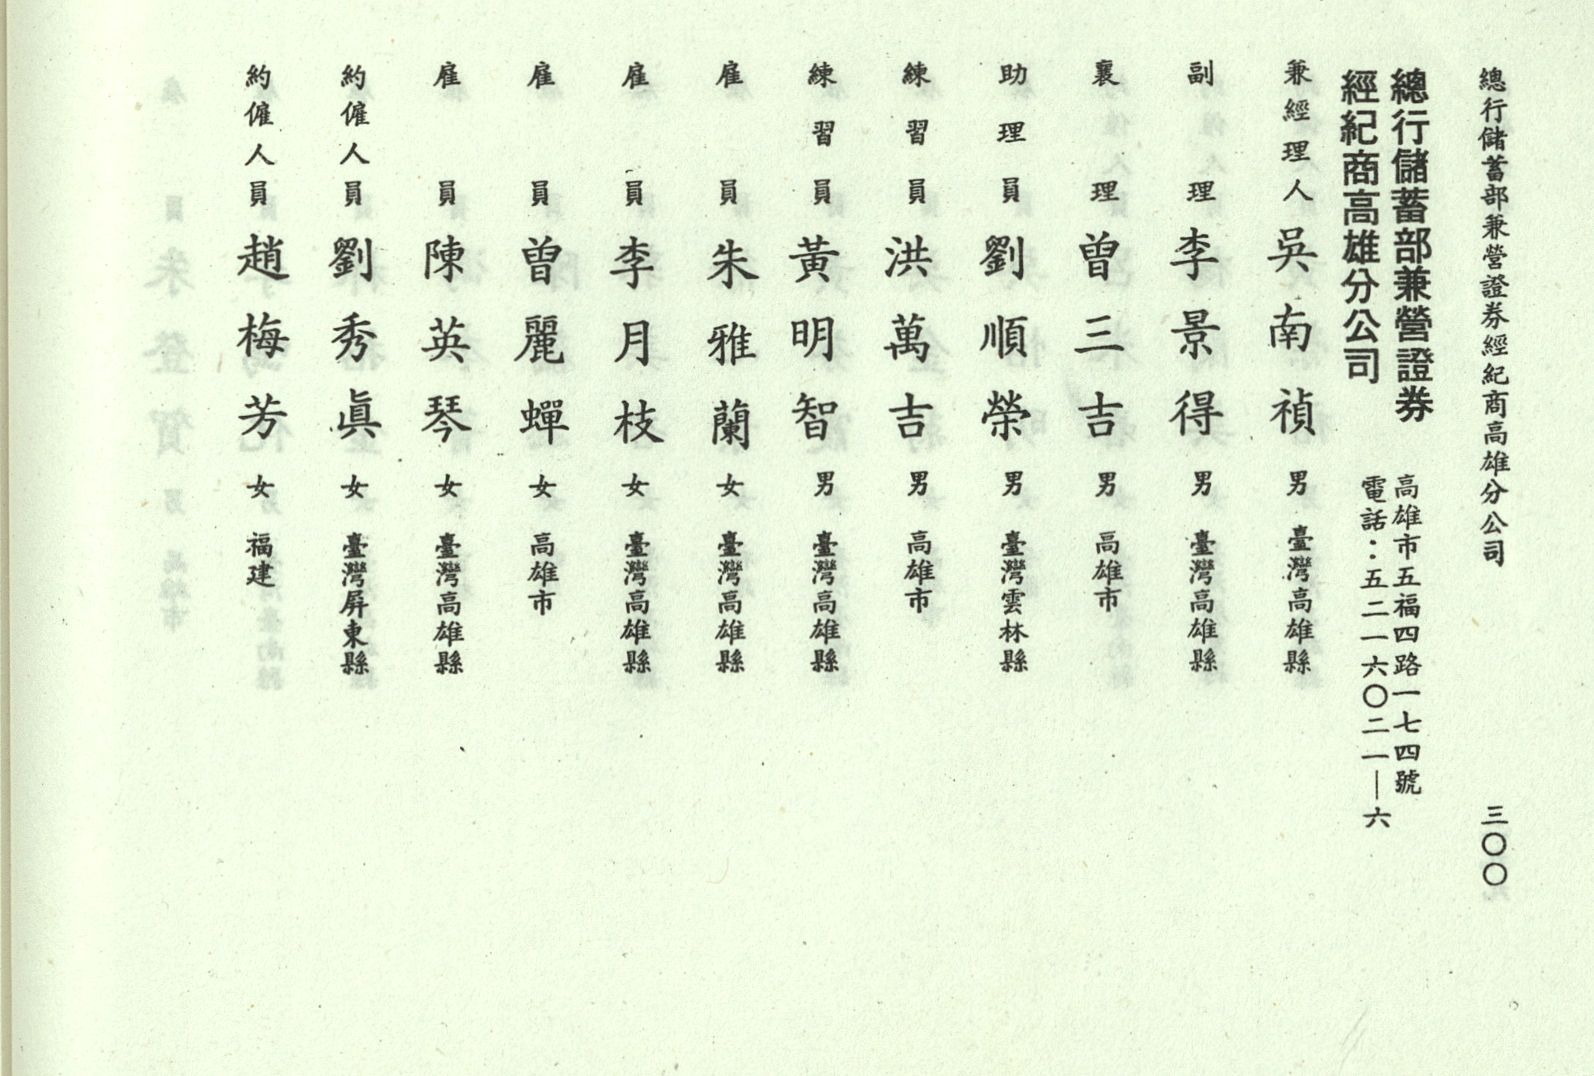 總行儲蓄部兼營證券經紀商高雄分公司 三〇〇
總行儲蓄部兼營證券
經紀商高雄分公司
高雄市五福四路一七四號
電話：五二一六〇二一—六
兼經理人 吳南禎 男 臺灣高雄縣
副理 李景得 男 臺灣高雄縣
襄理 曾三吉 男 高雄市
助理員 劉順榮 男 臺灣雲林縣
練習員 洪萬吉 男 高雄市
練習員 黃明智 男 臺灣高雄縣
雇員 朱雅蘭 女 臺灣高雄縣
雇員 李月枝 女 臺灣高雄縣
雇員 曾麗蟬 女 高雄市
雇員 陳英琴 女 臺灣高雄縣
約僱人員 劉秀眞 女 臺灣屏東縣
約僱人員 趙梅芳 女 福建